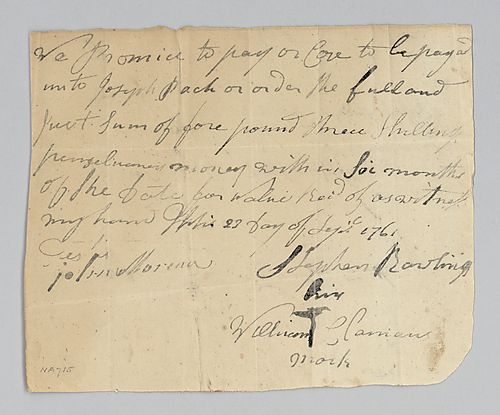 We Promice to pay or Cose to be payd
unto Joseph Pach or order the full and
Just Sum of fore pound three Shilling
penselvaney money with in Six months
of the Date for value Recd of as witnes
my hand this 23 Day of Sept 1761
Test
John Morena Stephen Rowling
his
William Clamans
mark
NA715